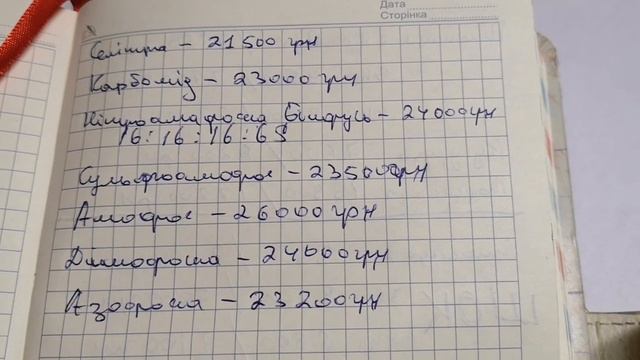 Дата
Сторінка
Селітра – 21500 грн
Карбомід – 23000 грн
Нітроамофоска Білорусь – 24000грн
16:16:16:6S
Сульфоамофос – 23500грн
Амофос – 26000 грн
Діамофоска – 24000грн
Азофоска – 23200грн